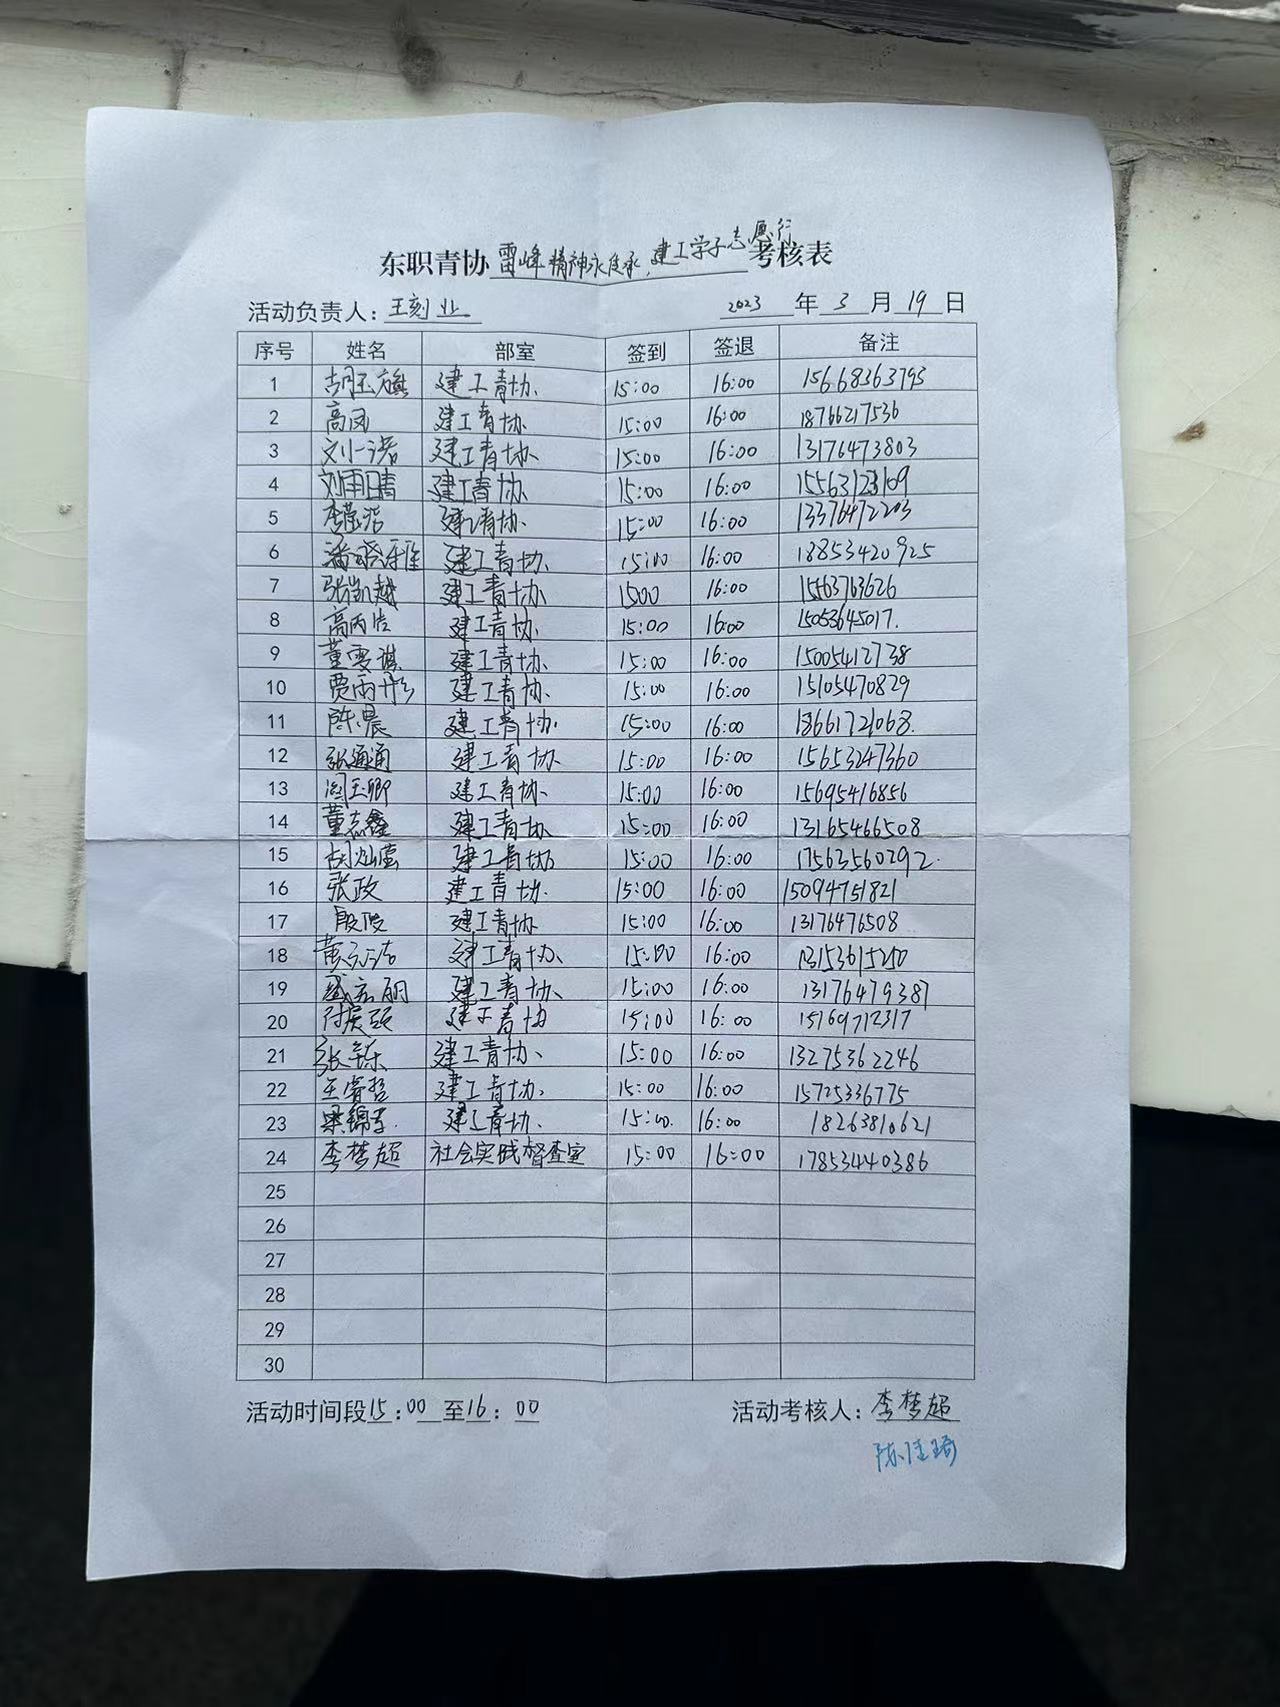 东职青协 雷锋精神永传承,建工学子志愿行 考核表
活动负责人: 王刻业 2023 年 3 月 19 日
序号 姓名 部室 签到 签退 备注
1 胡玉旗 建工青协 15:00 16:00 15668363793
2 高凤 建工青协 15:00 16:00 18766217536
3 刘一诺 建工青协 15:00 16:00 13176473803
4 刘雨晴 建工青协 15:00 16:00 15563123109
5 建工青协 15:00 16:00 13376472203
6 建工青协 15:00 16:00 18853420925
7 张凯越 建工青协 1500 16:00 15563763626
8 高丙浩 建工青协 15:00 16:00 15053645017.
9 董雯淇 建工青协 15:00 16:00 15005412738
10 贾雨彤 建工青协 15:00 16:00 15105470829
11 陈晨 建工青协. 15:00 16:00 18661721068.
12 张通通 建工青协 15:00 16:00 15653247360
13 闫玉卿 建工青协. 15:00 16:00 15695416856
14 董志鑫 建工青协 15:00 16:00 13165466508
15 胡灿莹 建工青协 15:00 16:00 17563560292.
16 张政 建工青协. 15:00 16:00 15094751821
17 建工青协 15:00 16:00 13176476508
18 建工青协、 15:00 16:00 13153615250
19 建工青协、 15:00 16:00 13176479387
20 建工青协 15:00 16:00 15169712317
21 张铄 建工青协、 15:00 16:00 13275362246
22 王睿哲 建工青协. 15:00 16:00 15725336775
23 建工青协. 15:00. 16:00 18263810621
24 李梦超 社会实践督查室 15:00 16:00 17853440386
25
26
27
28
29
30
活动时间段15:00 至16:00 活动考核人: 李梦超
陈佳琦